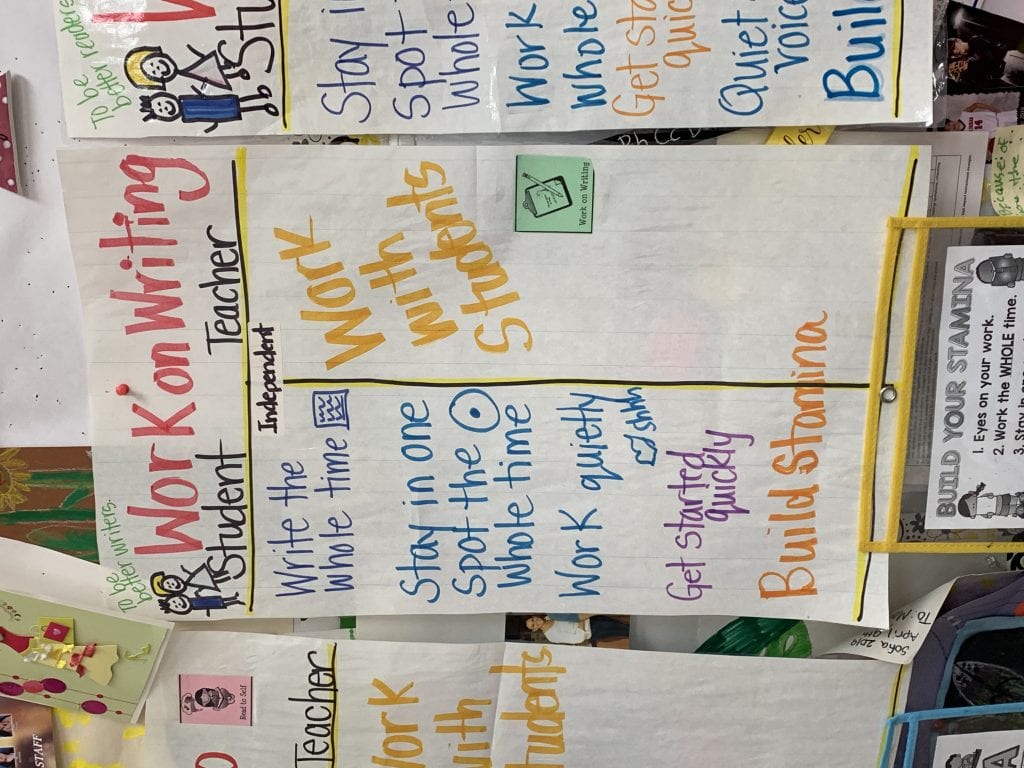 STAFF
Read to Self
Teacher
Work
with
Students
To be
better writers.
Work on Writing
Student
Teacher
Independent
Write the
whole time
Stay in one
spot the
whole time
Work quietly
shhh
Get started
quickly
Build Stamina
Work
with
Students
Work on Writing
To be
better readers.
Stu
Stay i
spot
whole
Work
whole
Get sta
quic
Quiet
voice
Build
BUILD YOUR STAMINA
1. Eyes on your work.
2. Work the WHOLE time.
3. Stay in
Sofia 2019
April 9th
To: M